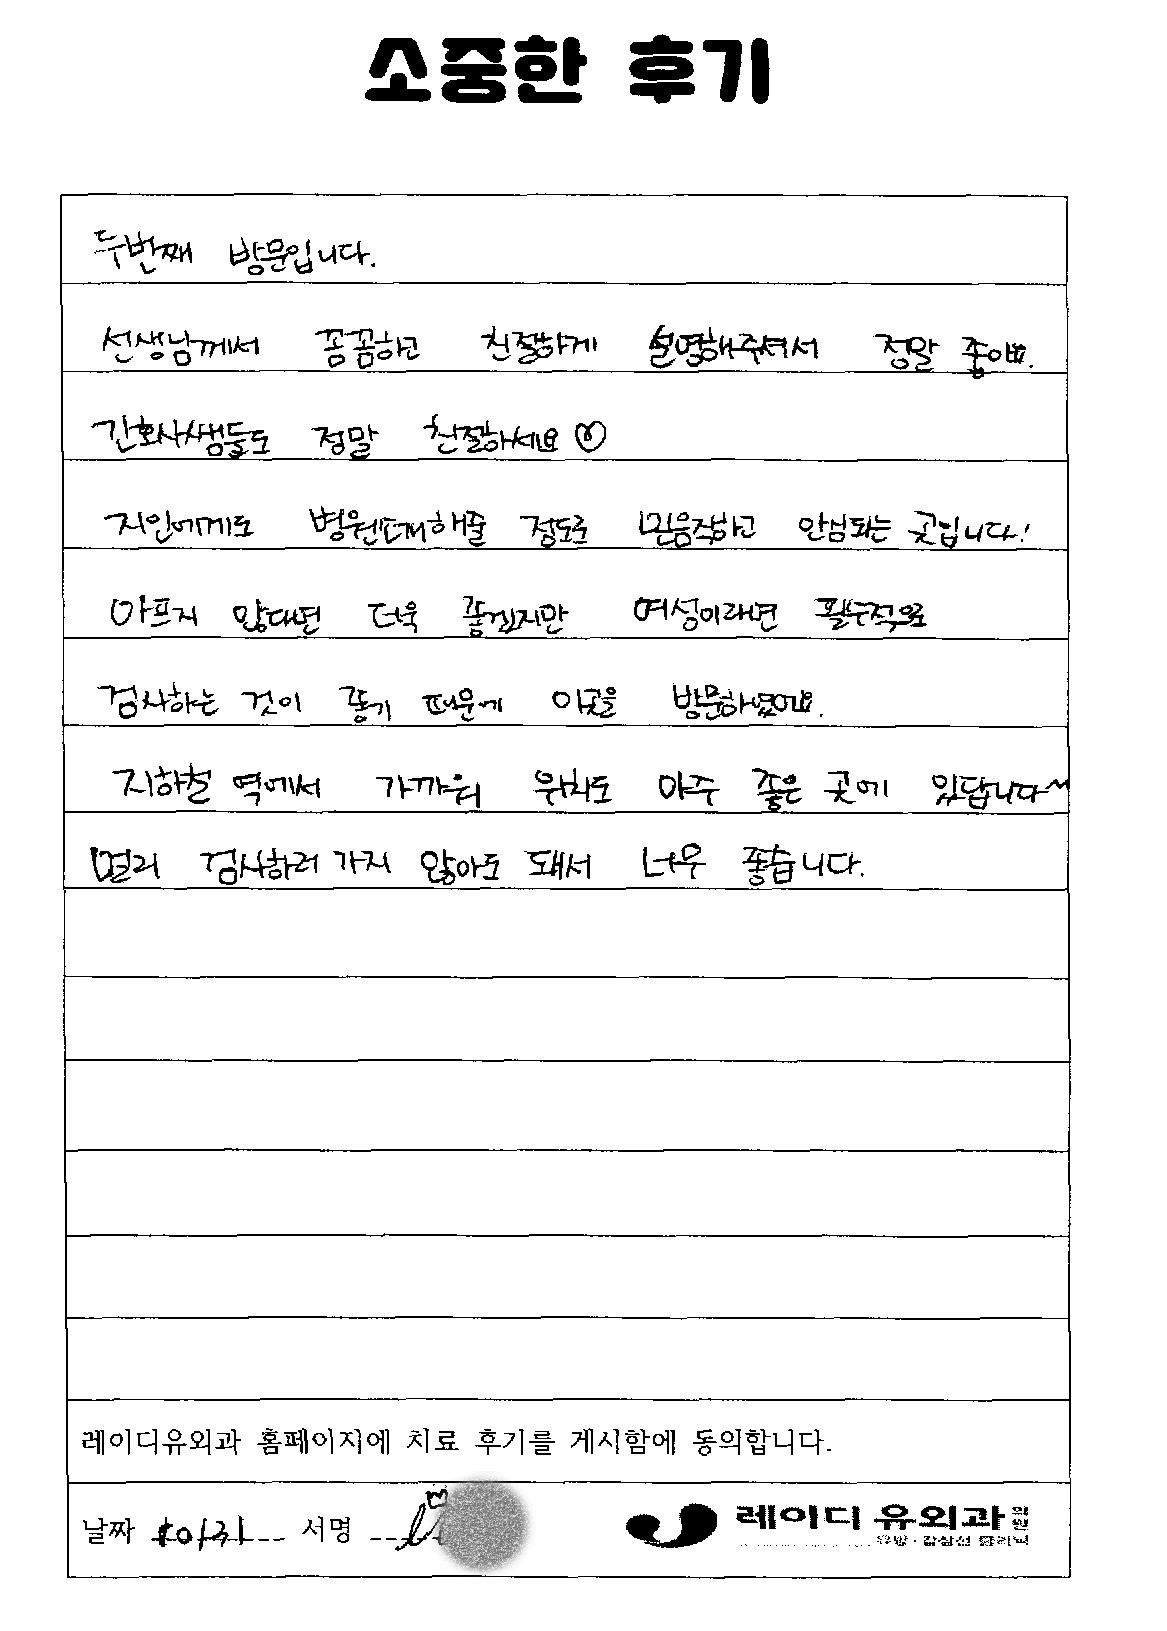 소중한 후기
두번째 방문입니다.
선생님께서 꼼꼼하고 친절하게 설명해주셔서 정말 좋아요.
간호사쌤들도 정말 친절하세요♡
지인에게도 병원 해줄 정도로 믿음직하고 안심되는 곳입니다!
아프지 않다면 더욱 좋겠지만 여성이라면 필수적으로
검사하는 것이 좋기 때문에 이곳을 방문하였어요.
지하철 역에서 가까워 위치도 아주 좋은 곳에 있답니다~
멀리 검사하러 가지 않아도 돼서 너무 좋습니다.
레이디유외과 홈페이지에 치료 후기를 게시함에 동의합니다.
날짜 서명
레이디 유외과 의원
유방·갑상선 클리닉